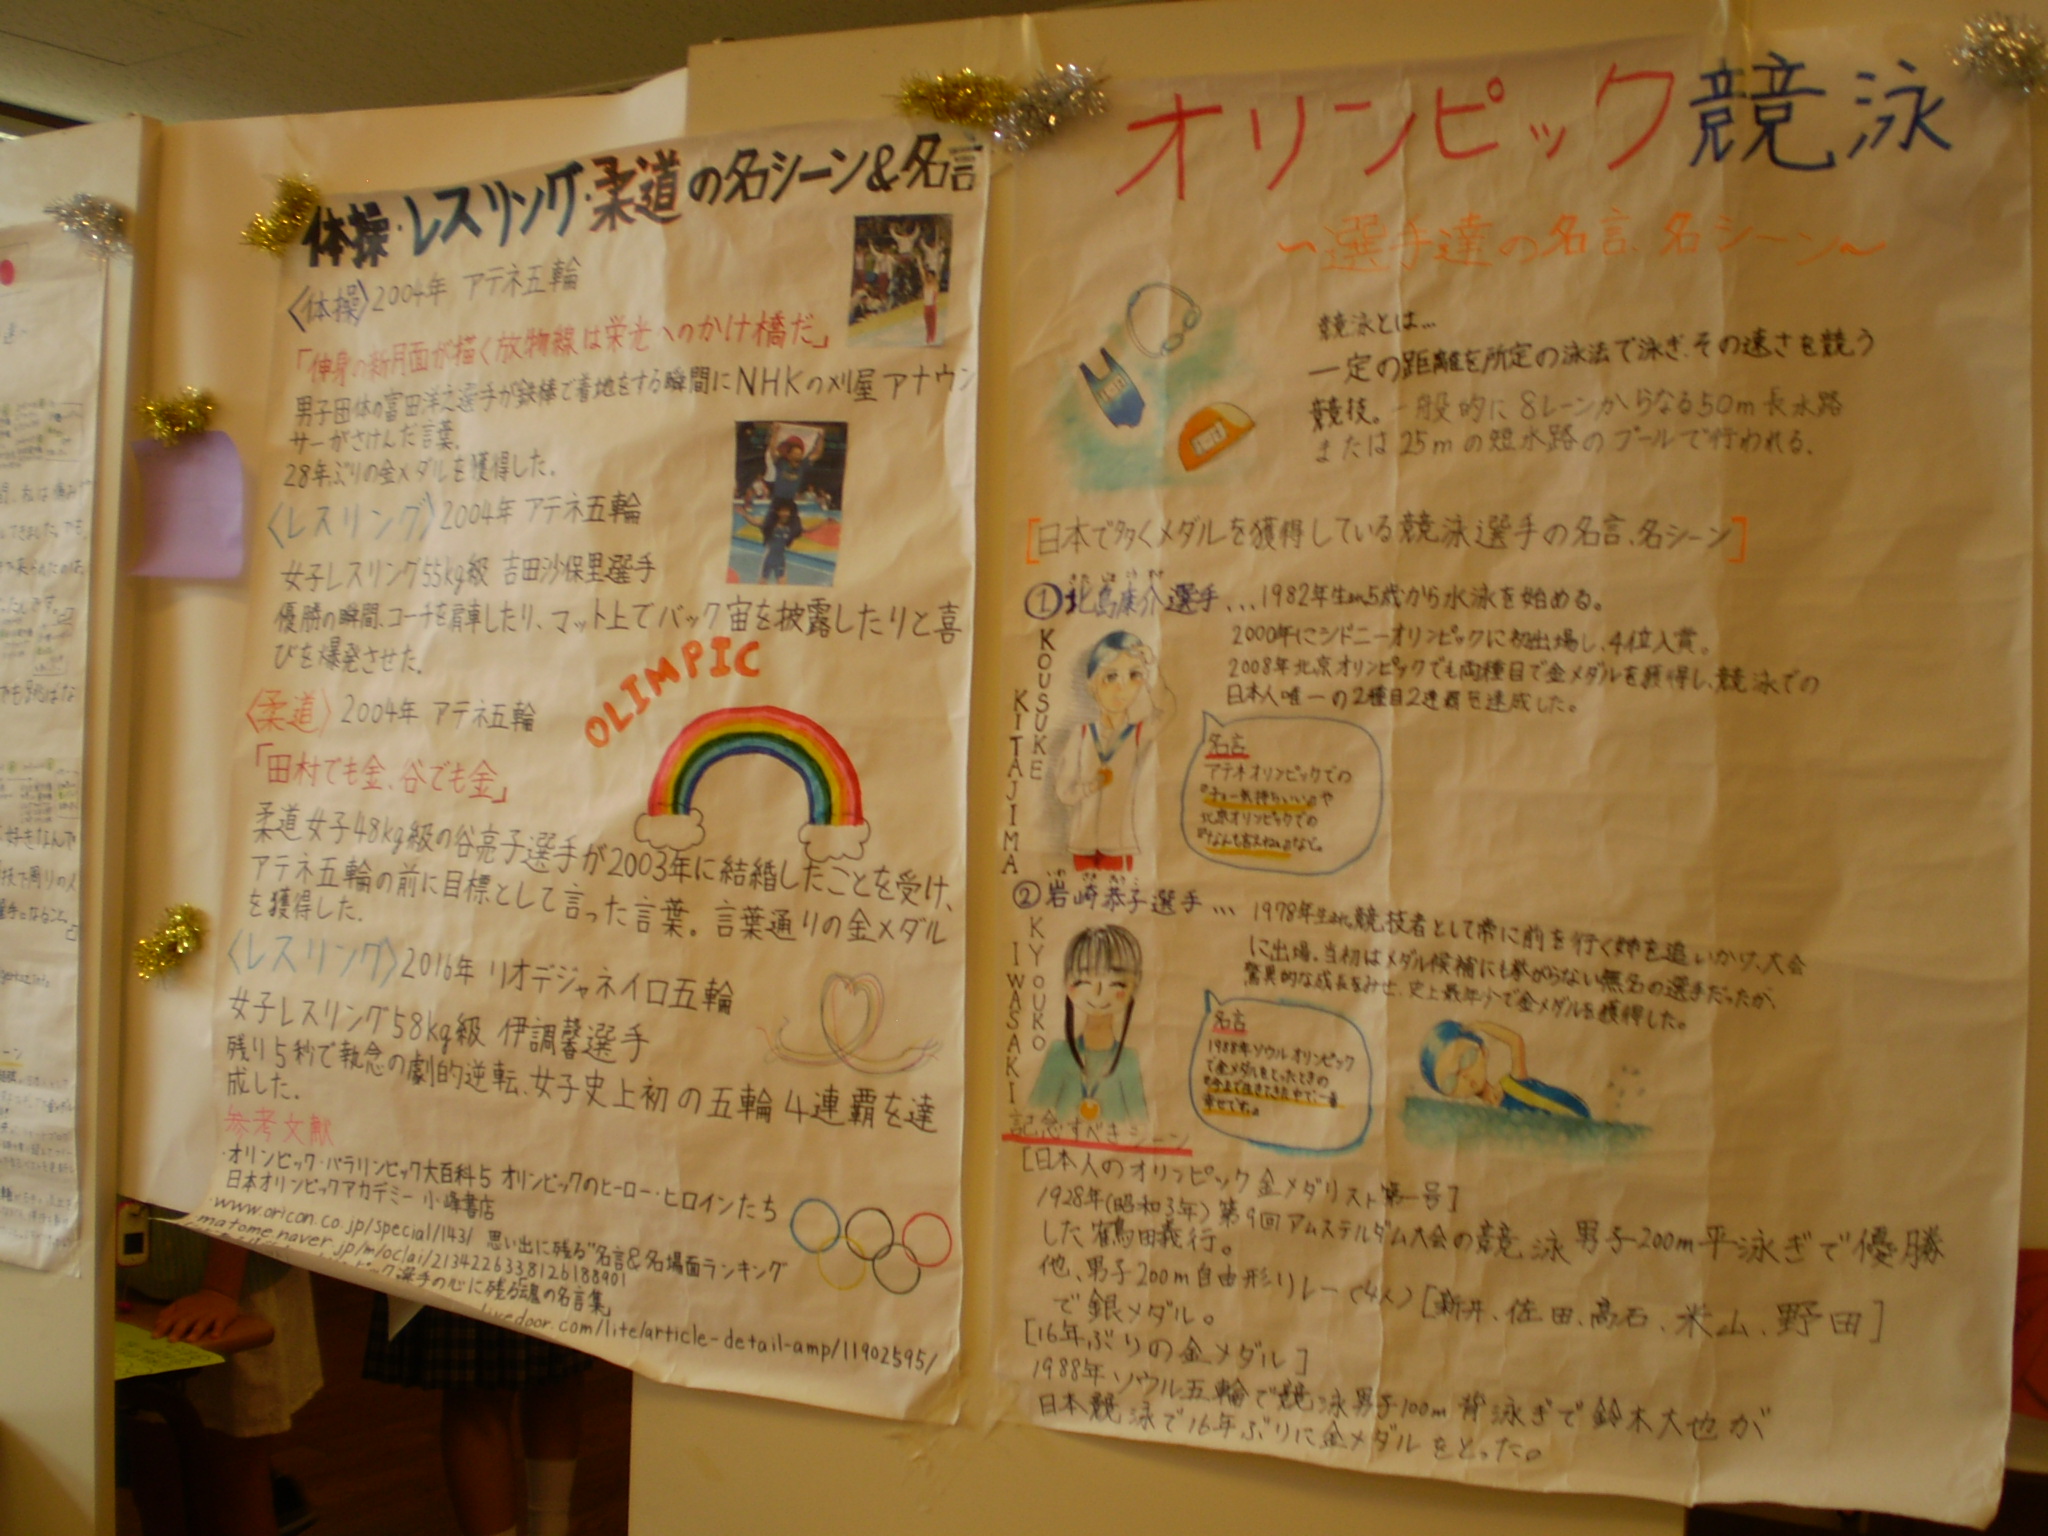 体操・レスリング・柔道の名シーン&名言
〈体操〉2004年 アテネ五輪
「伸身の新月面が描く放物線は栄光へのかけ橋だ」
男子団体の富田洋之選手が鉄棒で着地をする瞬間にNHKの刈屋アナウン
サーがさけんだ言葉。
28年ぶりの金メダルを獲得した。
〈レスリング〉2004年 アテネ五輪
女子レスリング55kg級 吉田沙保里選手
優勝の瞬間、コーチを肩車したり、マット上でバック宙を披露したりと喜
びを爆発させた。
OLIMPIC
〈柔道〉2004年 アテネ五輪
「田村でも金、谷でも金」
柔道女子48kg級の谷亮子選手が2003年に結婚したことを受け、
アテネ五輪の前に目標として言った言葉。言葉通りの金メダル
を獲得した。
〈レスリング〉2016年 リオデジャネイロ五輪
女子レスリング58kg級 伊調馨選手
残り5秒で執念の劇的逆転、女子史上初の五輪4連覇を達
成した。
参考文献
・オリンピック・パラリンピック大百科5 オリンピックのヒーロー・ヒロインたち
日本オリンピックアカデミー 小峰書店
・www.oricon.co.jp/special/1431 思い出に残る"名言&名場面ランキング
matome.naver.jp/m/oclai/2134226338126188901
ピック選手の心に残る魂の名言集」
livedoor.com/lite/article-detail-amp/11902595/
オリンピック競泳
〜選手達の名言、名シーン〜
競泳とは...
一定の距離を所定の泳法で泳ぎ、その速さを競う
競技。一般的に8レーンからなる50m長水路
または25mの短水路のプールで行われる。
[日本で多くメダルを獲得している競泳選手の名言、名シーン]
①北島康介選手...1982年生まれ5歳から水泳を始める。
2000年にシドニーオリンピックに初出場し、4位入賞。
2008年北京オリンピックでも両種目で金メダルを獲得し、競泳での
日本人唯一の2種目2連覇を達成した。
KOUSUKE
KITAJIMA
名言
アテネオリンピックでの
『チョー気持ちいい』や
北京オリンピックでの
『なんも言えねぇ』など。
②岩崎恭子選手... 1978年生まれ。競技者として常に前を行く姉を追いかけ、大会
に出場。当初はメダル候補にも挙がらない無名の選手だったが、
驚異的な成長をみせ、史上最年少で金メダルを獲得した。
KYOUKO
IWASAKI
名言
1988年ソウルオリンピック
で金メダルをとったときの
『今まで生きてきた中で、一番
幸せです。』
記念すべきシーン
[日本人のオリンピック金メダリスト第一号]
1928年(昭和3年) 第9回アムステルダム大会の競泳男子200m平泳ぎで優勝
した鶴田義行。
他、男子200m自由形リレー(4人)[新井、佐田、高石、米山、野田]
で銀メダル。
[16年ぶりの金メダル]
1988年ソウル五輪で競泳男子100m背泳ぎで鈴木大也が
日本競泳で16年ぶりに金メダルをとった。